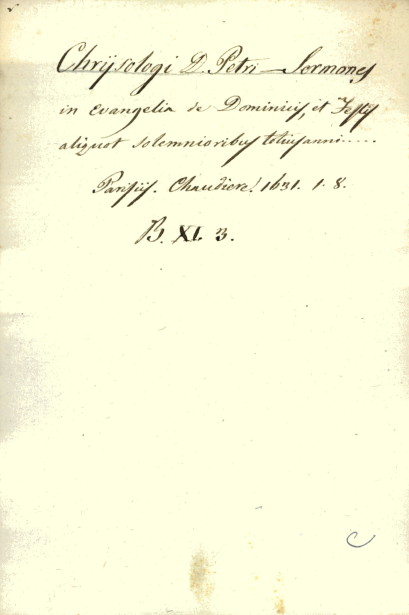 Chrÿsologi D. Petri — Sermones
in evangelia de Dominicis, et Festis
aliquot solemnioribus totius anni.....
Parisÿs. Chaudiere. 1631. 1. 8.
B. XI. 3.